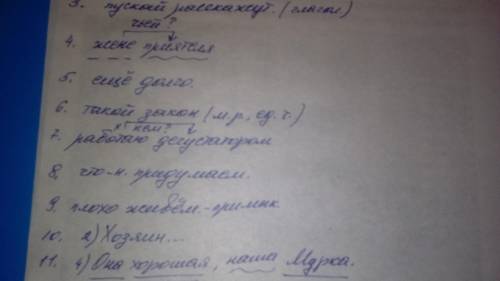 3. пускай расскажут. (глагол)
чьей?
4. жене приятеля
5. ещё долго.
6. такой закон (м.р., ед.ч.)
х кем?
7. работаю дегустатором
8. что-н. придумаем.
9. плохо живём. - примык
10. 2) Хозяин...
11. 4) Она хорошая, наша Мурка.